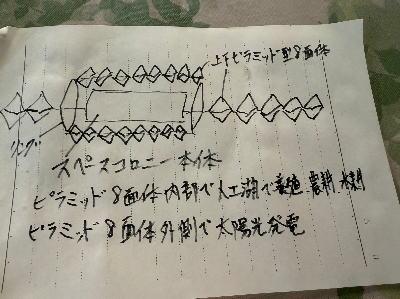 上下ピラミッド型8面体
リング
スペースコロニー本体
ピラミッド8面体内部で人工湖で養殖 農耕
ピラミッド8面体外側で太陽光発電